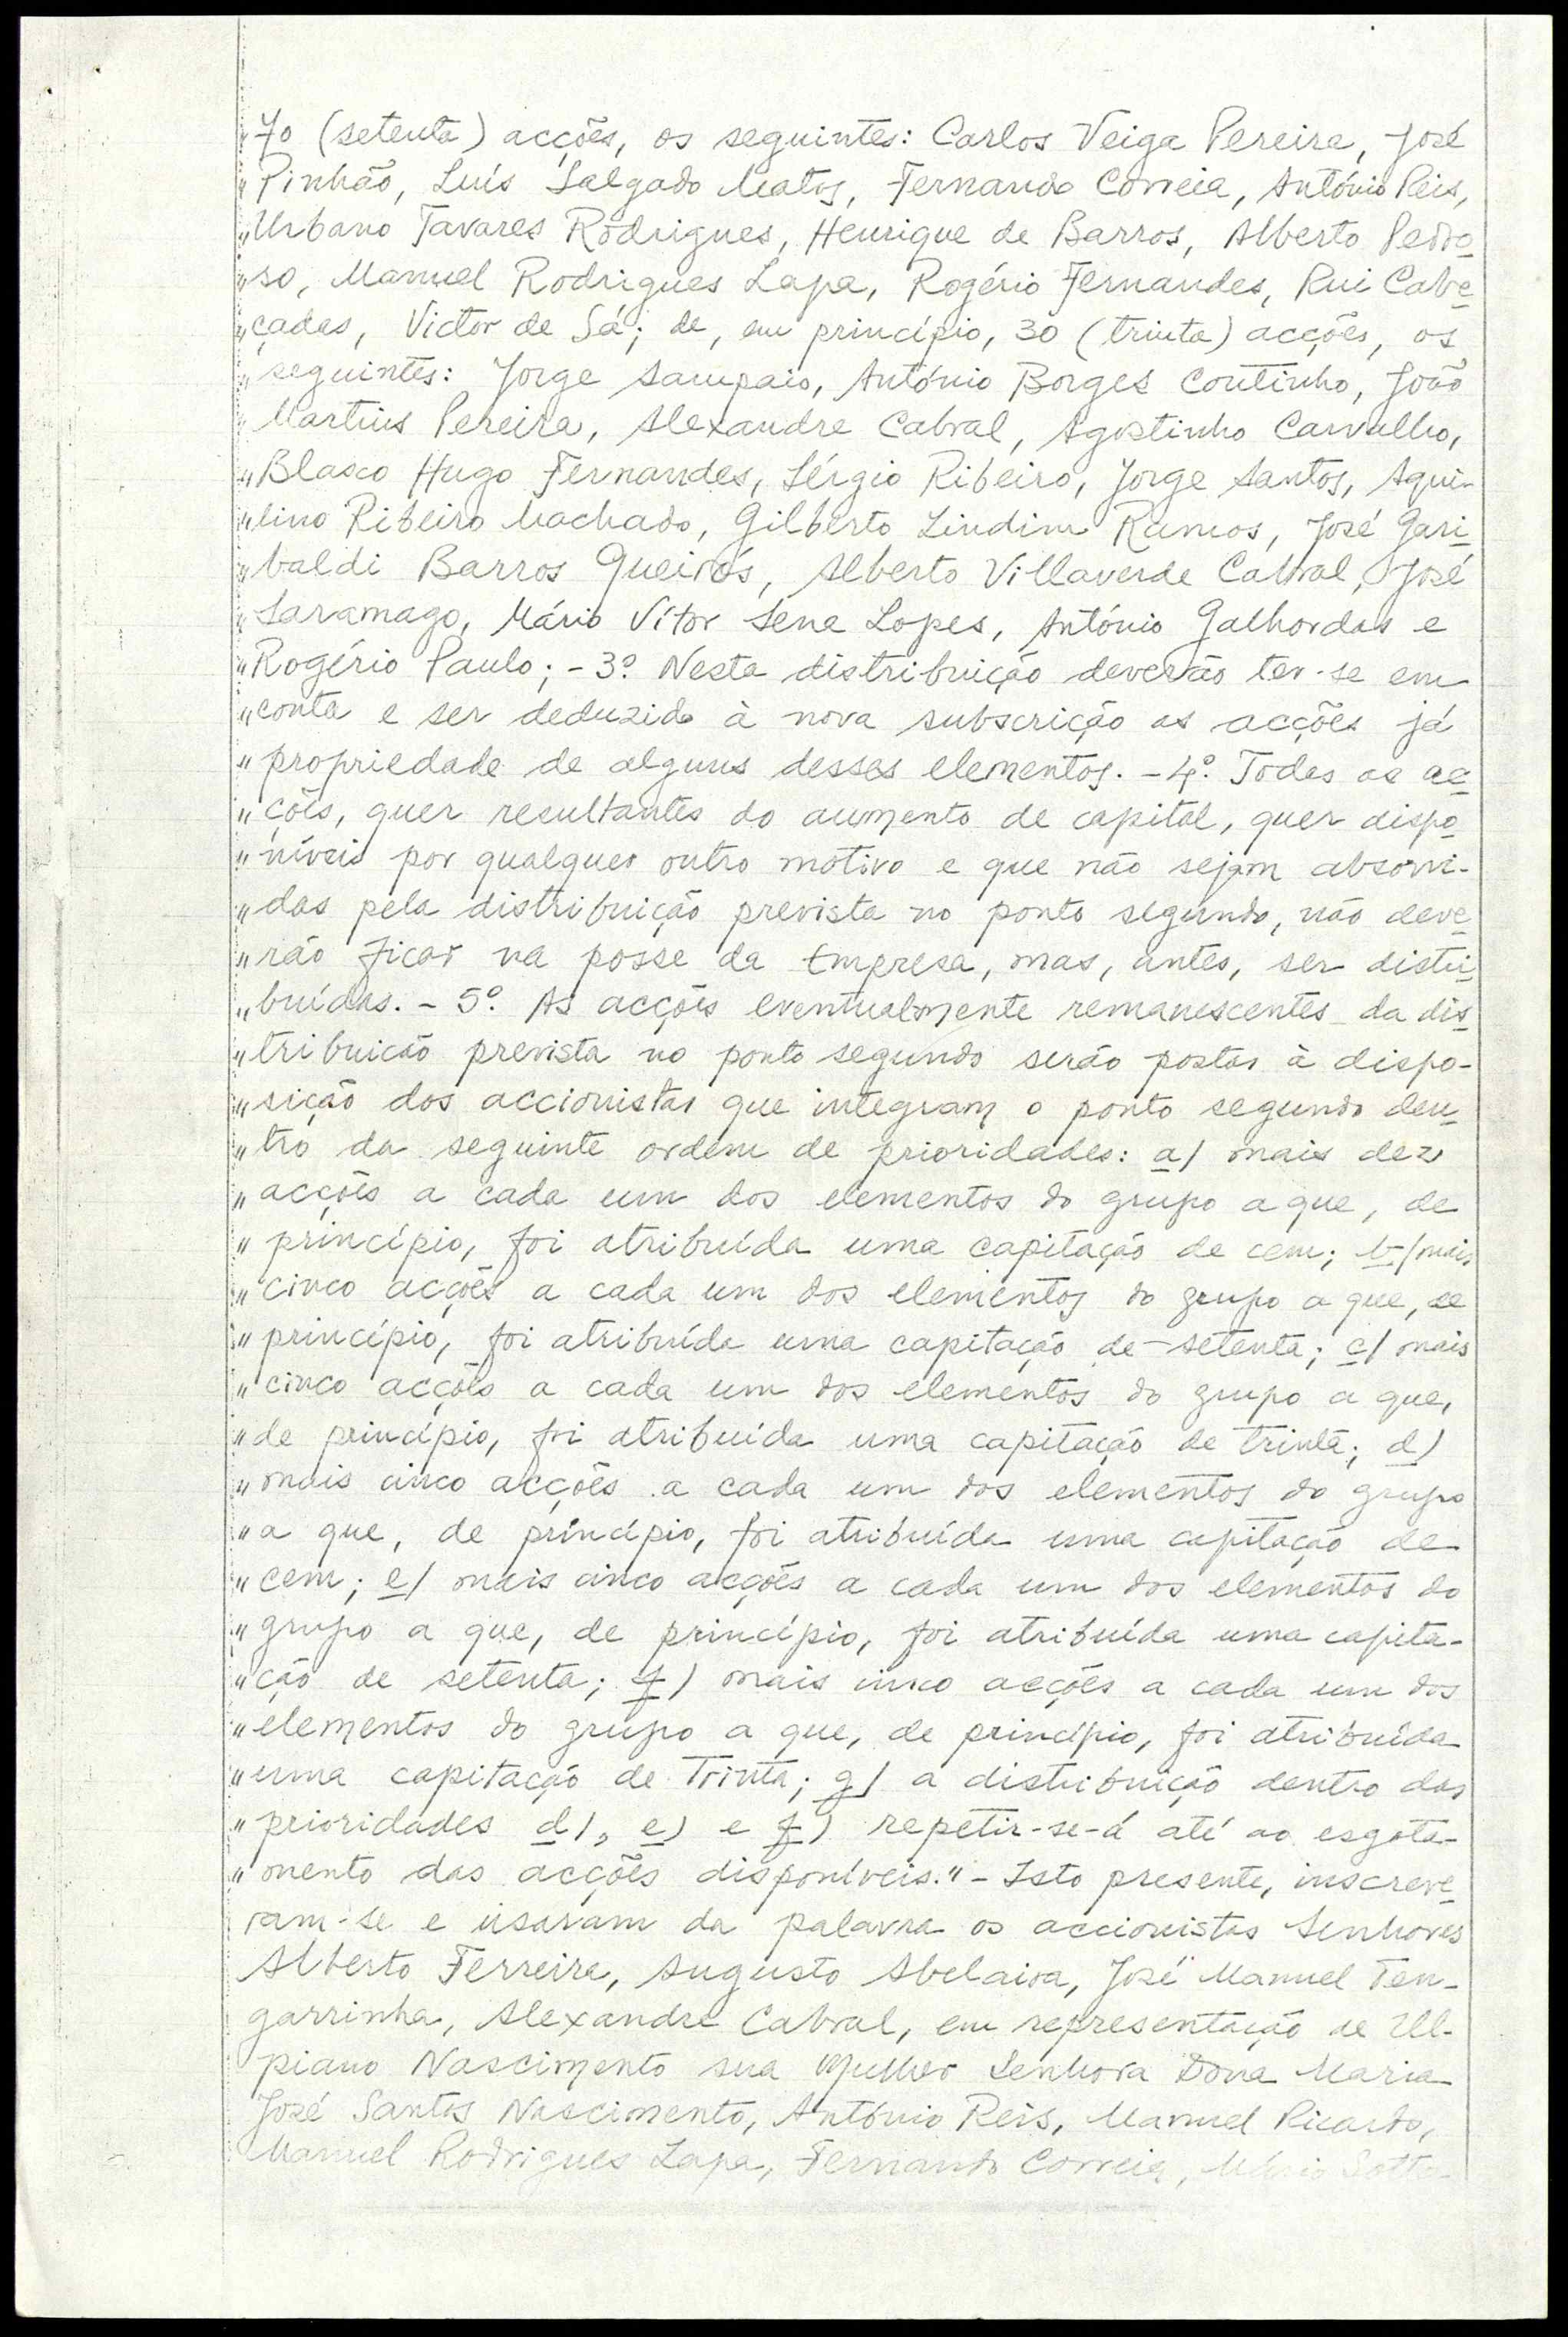 "70 (setenta) acções, os seguintes: Carlos Veiga Pereira, José
"Pinhão, Luís Salgado Matos, Fernando Correia, António Reis,
"Urbano Tavares Rodrigues, Henrique de Barros, Alberto Pedro
"so, Manuel Rodrigues Lapa, Rogério Fernandes, Rui Cabe
"çadas, Victor de Sá; de, em princípio, 30 (trinta) acções, os
"seguintes: Jorge Sampaio, António Borges Coutinho, João
"Martins Pereira, Alexandre Cabral, Agostinho Carvalho,
"Blasco Hugo Fernandes, Sérgio Ribeiro, Jorge Santos, Aqui-
"lino Ribeiro Machado, Gilberto Lindim Ramos, José Gari
"baldi Barros Queirós, Alberto Villaverde Cabral, José
"Saramago, Mário Vítor Sena Lopes, António Galhordas e
"Rogério Paulo; - 3º. Nesta distribuição deverão ter-se em
"conta e ser deduzido à nova subscrição as acções já
"propriedade de alguns desses elementos. - 4º. Todas as ac
"ções, quer resultantes do aumento de capital, quer dispo
"níveis por qualquer outro motivo e que não sejam absorvi-
"das pela distribuição prevista no ponto segundo, não deve
"rão ficar na posse da Empresa, mas, antes, ser distri
"buídas. - 5º. As acções eventualmente remanescentes da dis
"tribuição prevista no ponto segundo serão postas à dispo-
"sição dos accionistas que integram o ponto segundo den
"tro da seguinte ordem de prioridades: a) mais dez
"acções a cada um dos elementos do grupo a que, de
"princípio, foi atribuída uma capitação de cem; b-) mais
"cinco acções a cada um dos elementos do grupo a que, de
"princípio, foi atribuída uma capitação de setenta; c) mais
"cinco acções a cada um dos elementos do grupo a que,
"de princípio, foi atribuída uma capitação de trinta; d)
"mais cinco acções a cada um dos elementos do grupo
"a que, de princípio, foi atribuída uma capitação de
"cem; e) mais cinco acções a cada um dos elementos do
"grupo a que, de princípio, foi atribuída uma capita-
"ção de setenta; f) mais cinco acções a cada um dos
"elementos do grupo a que, de princípio, foi atribuída
"uma capitação de Trinta; g) a distribuição dentro das
"prioridades d), e) e f) repetir-se-á até ao esgota-
"mento das acções disponíveis." - Isto presente, inscreve
ram-se e usaram da palavra os accionistas Senhores
Alberto Ferreira, Augusto Abelaira, José Manuel Ten-
garrinha, Alexandre Cabral, em representação de Ul-
piano Nascimento sua Mulher Senhora Dona Maria
José Santos Nascimento, António Reis, Manuel Ricardo,
Manuel Rodrigues Lapa, Fernando Correia, Mário Sotto-